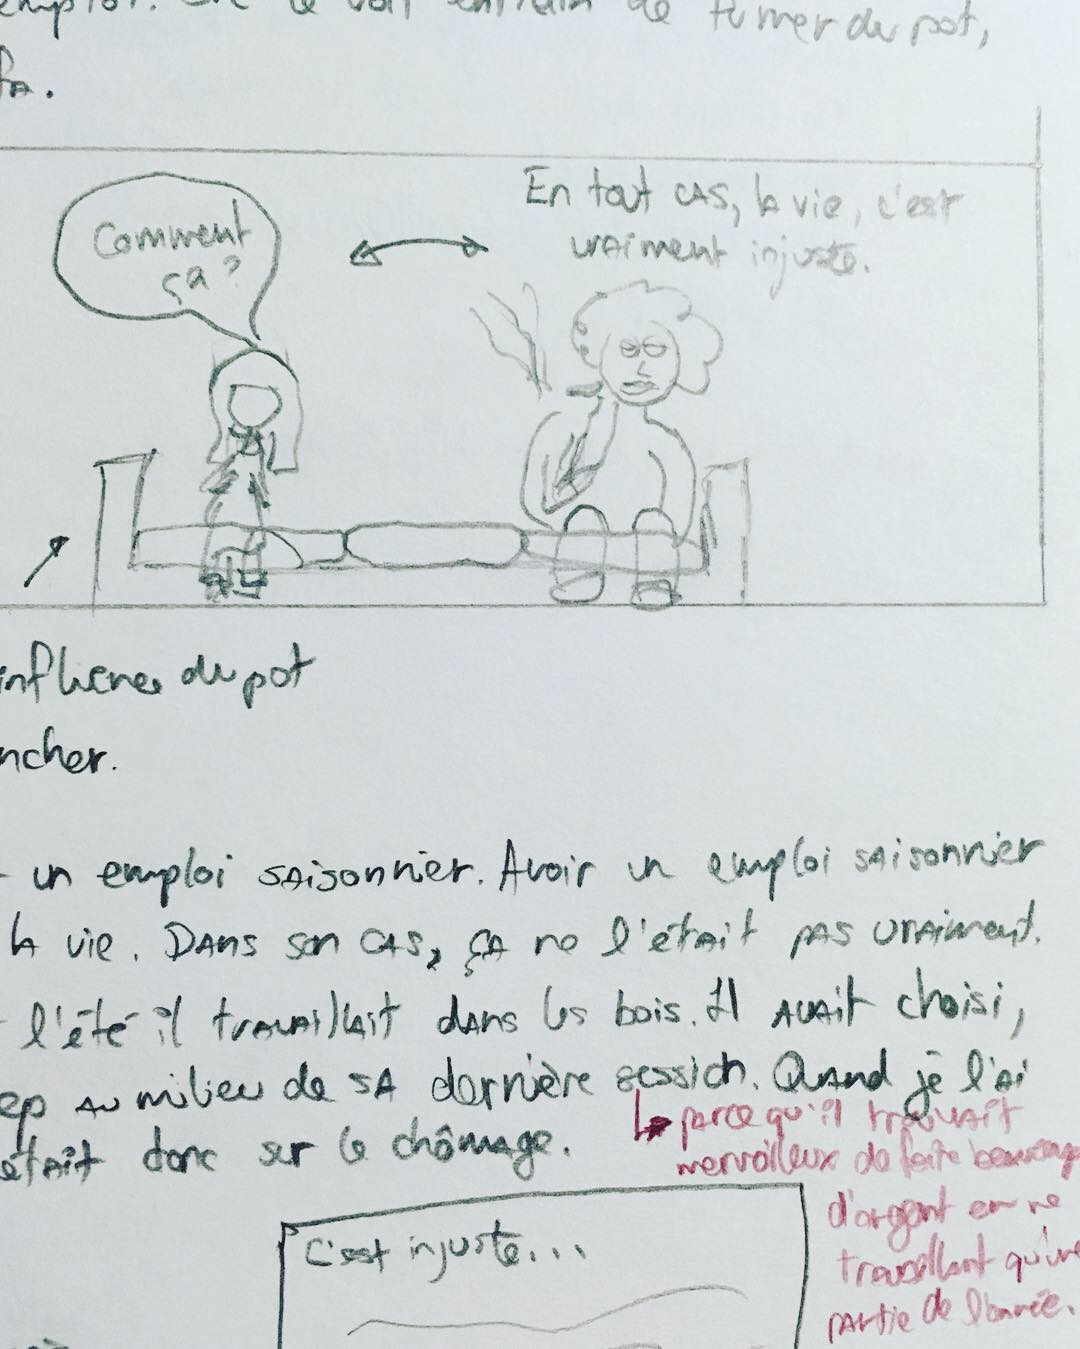 emploi. On le voit entrain de fumer du pot,
fa.
Comment
ça?
En tout cas, la vie, c'est
vraiment injuste.
influence du pot
ncher.
un emploi saisonnier. Avoir un emploi saisonnier
la vie. Dans son cas, ça ne l'était pas vraiment.
l'été il travaillait dans les bois. Il avait choisi,
ep au milieu de sa dernière session. Quand je l'ai
était donc sur le chômage.
parce qu'il trouvait
merveilleux de faire beaucoup
d'argent en ne
travaillant qu'une
partie de l'année.
C'est injuste...